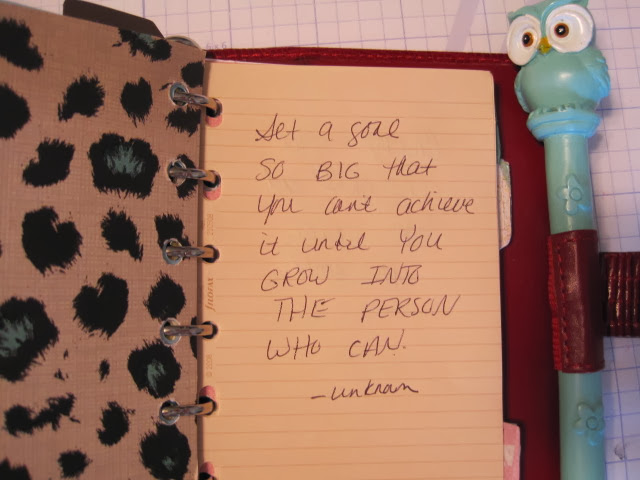 Set a goal
so BIG that
you can't achieve
it until YOU
GROW INTO
THE PERSON
WHO CAN.
- unknown
filofax